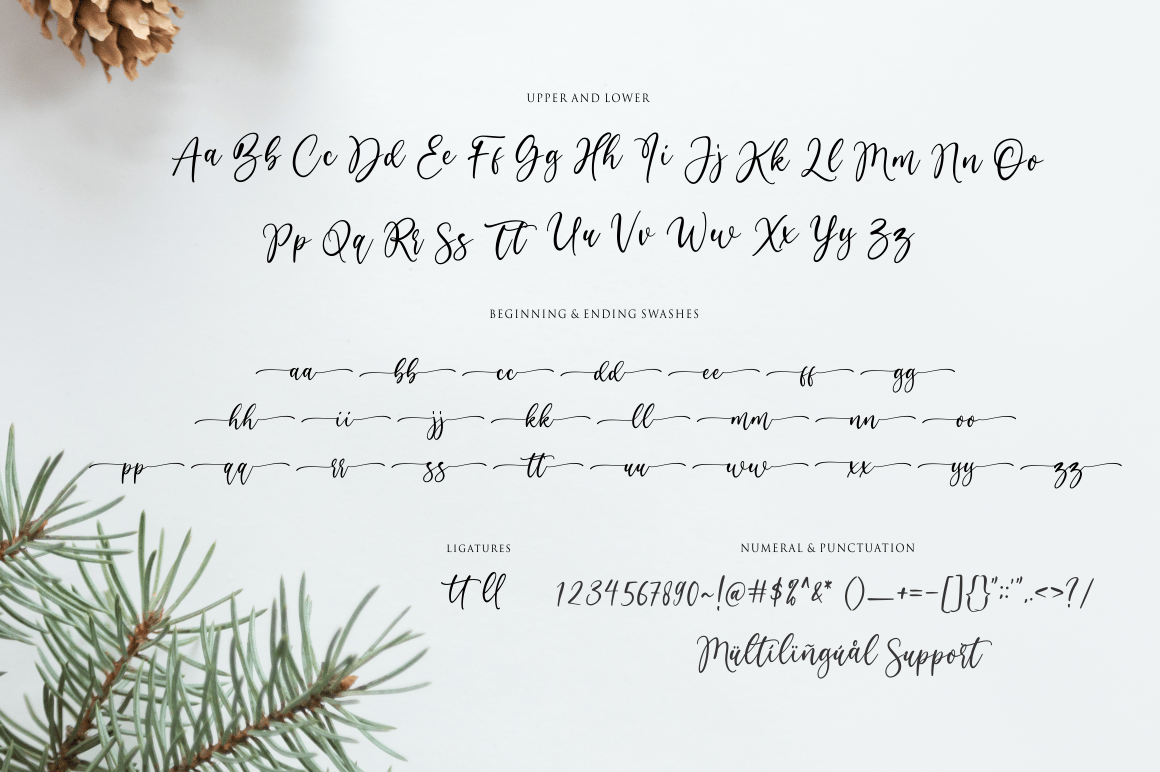 UPPER AND LOWER
Aa Bb Cc Dd Ee Ff Gg Hh Ii Jj Kk Ll Mm Nn Oo
Pp Qq Rr Ss Tt Uu Vv Ww Xx Yy Zz
BEGINNING & ENDING SWASHES
aa bb cc dd ee ff gg
hh ii jj kk ll mm nn oo
pp qq rr ss tt uu ww xx yy zz
LIGATURES
tt ll
NUMERAL & PUNCTUATION
1234567890~!@#$%^&* ()_+=-[]{}";:'",.<>?/
Mültilïñgúål Support